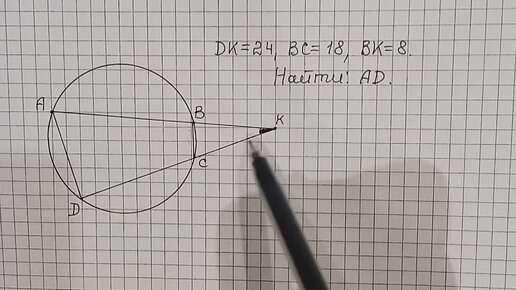 DK=24, BC=18, BK=8.
Найти: AD.
A
B
K
C
D